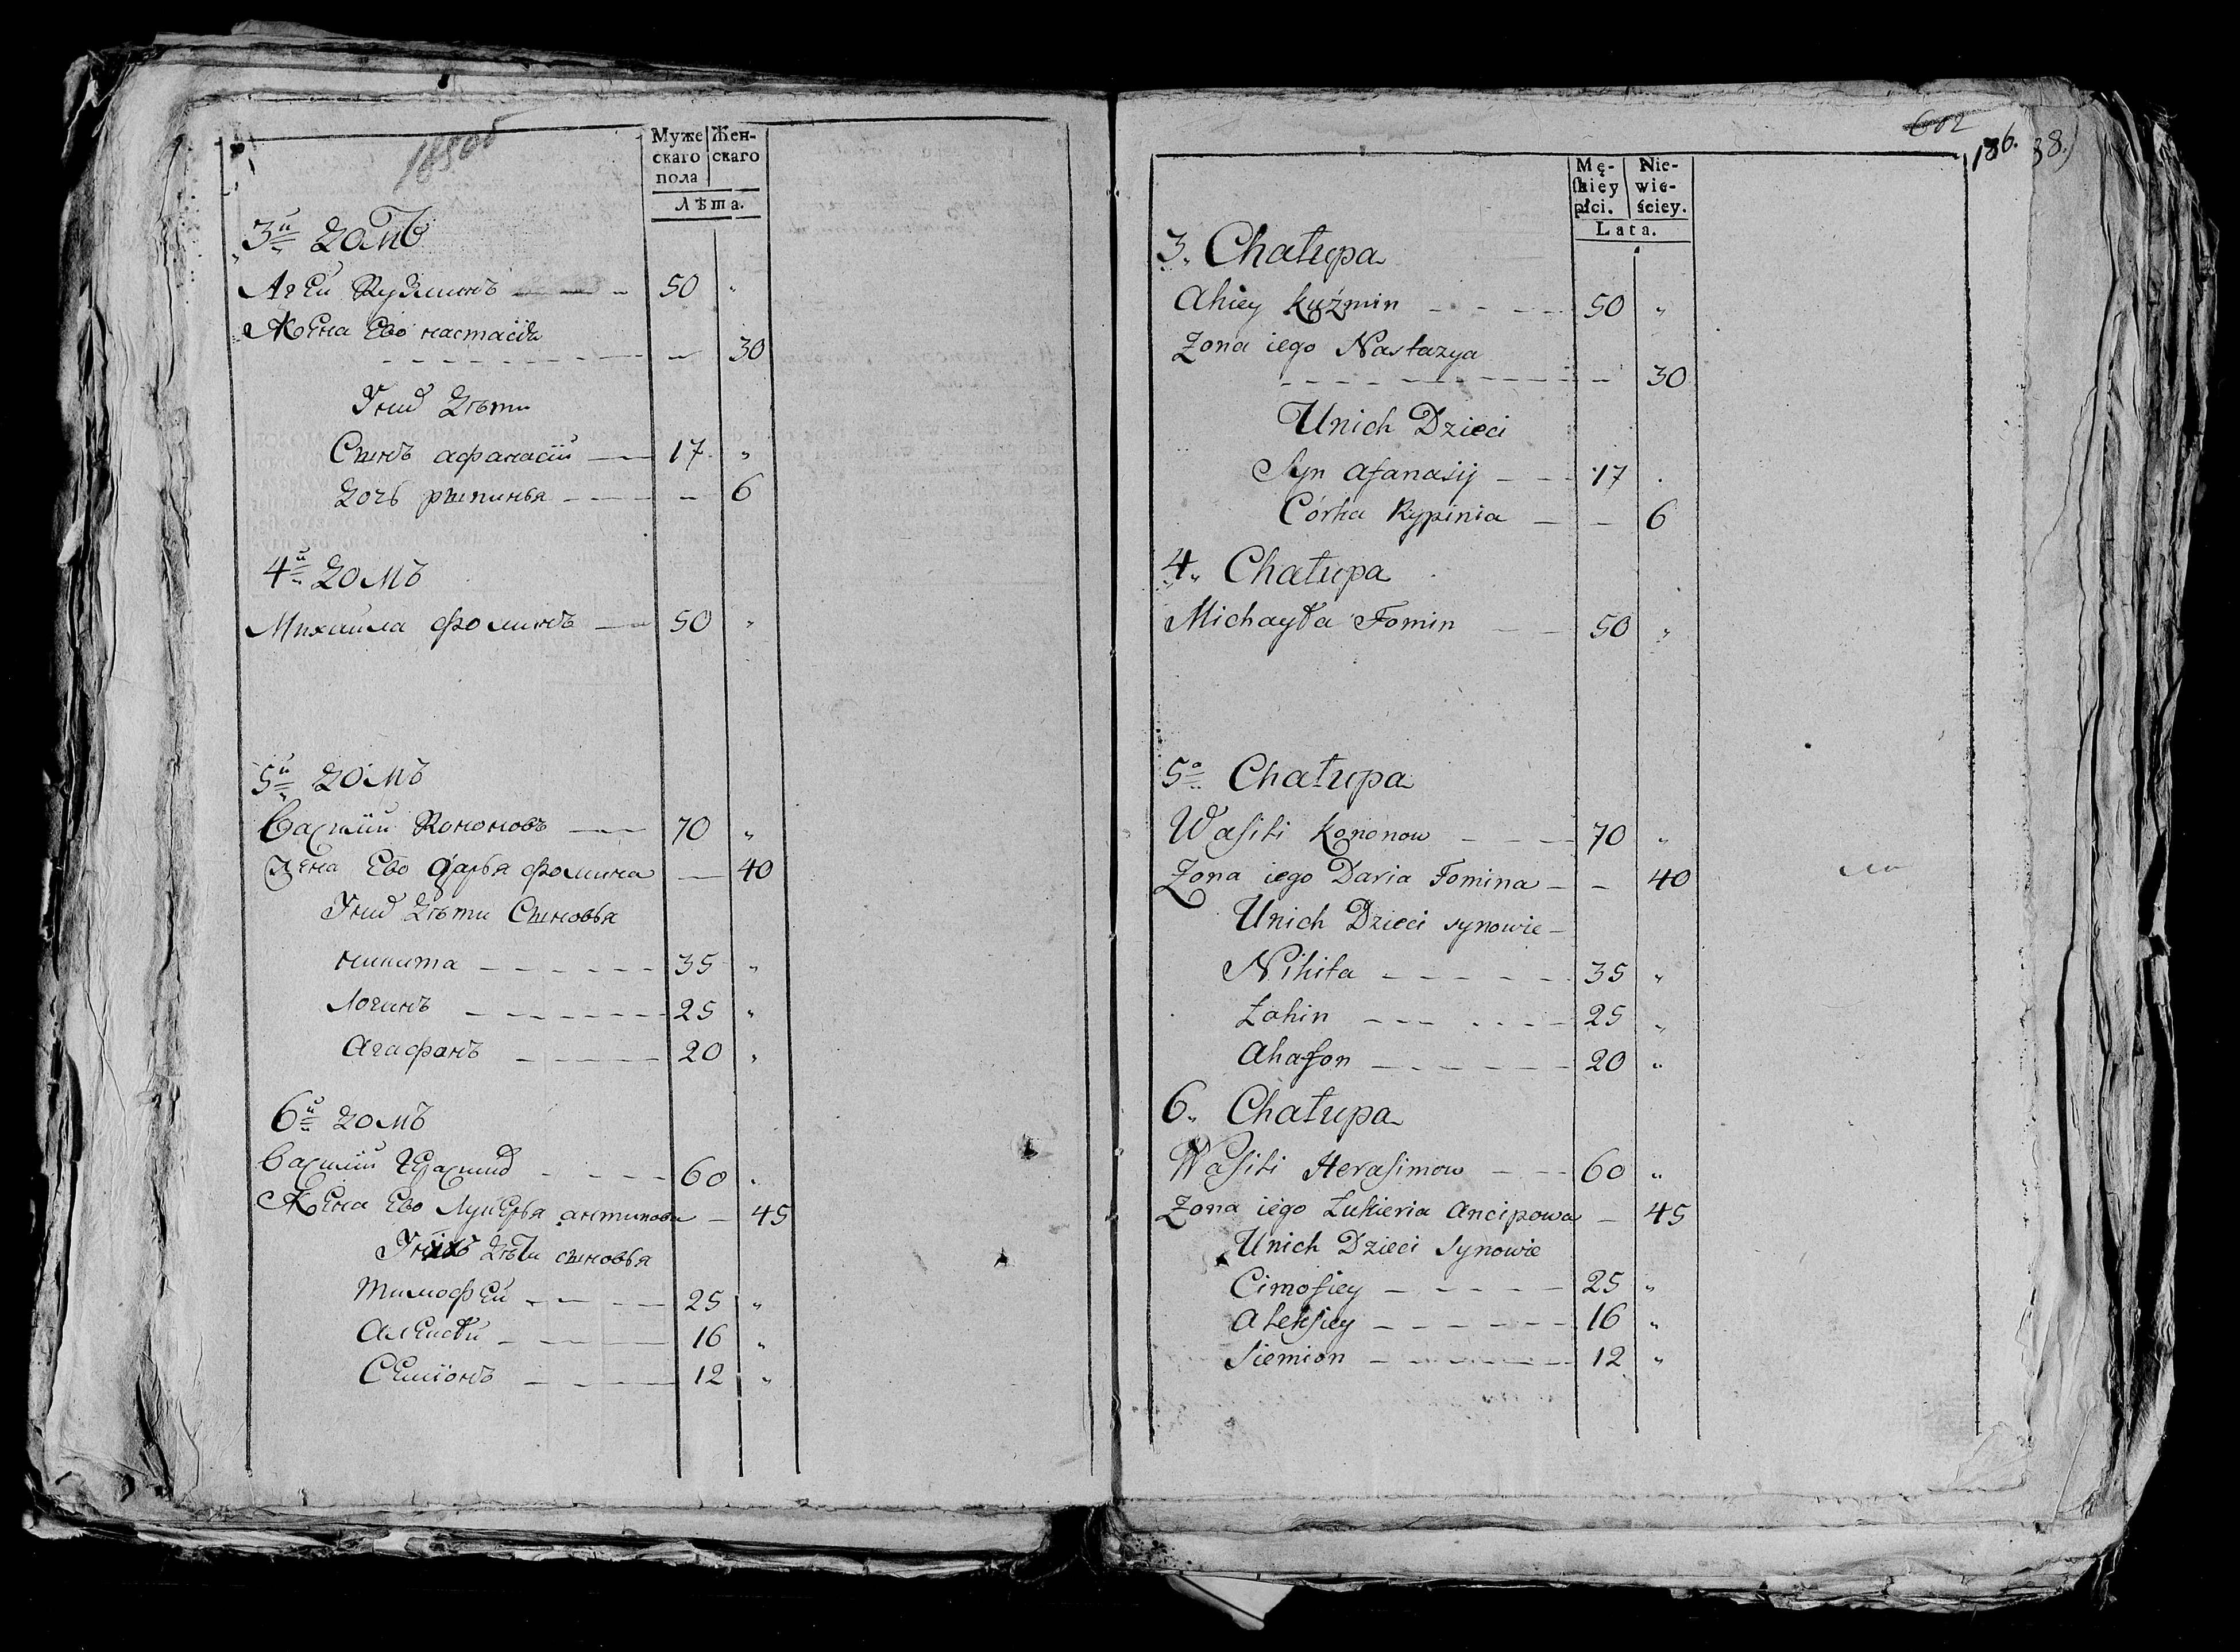 Муже Жен-
скаго скаго
пола
Лѣта.
3й домъ
Агей Кузминъ 50 "
Жена Ево настасія
30
Унихъ дѣти
Сынъ афанасій 17 "
дочь рыпинья 6
4й домъ
Михаила фоминъ 50 "
5й домъ
Василій Кононовъ 70 "
Жена Ево дарья фомина 40
Унихъ дѣти Сыновья
никита 35 "
Логинъ 25 "
Агафонъ 20 "
6й домъ
Василій
60 "
Жена Ево Лукерья антипова 45
Унихъ дѣти сыновья
тимофей 25 "
Алексѣй 16 "
Семіонъ 12 "
602
186. 38.)
Mę- Nie-
skiey wie-
płci. ściey.
Lata.
3. Chałupa
Ahiey Kuźmin 50 "
Zona iego Nastazya
30
Unich Dzieci
Syn Afanasij 17
Córka Rypinia 6
4. Chałupa
Michayła Fomin 50 "
5a Chałupa
Wasili Kononow 70 "
Zona iego Daria Fomina 40
Unich Dzieci synowie
Nikita 35 "
Łohin 25 "
Ahafon 20 "
6. Chałupa
Wasili Herasimow 60 "
Zona iego Łukieria Ancipowa 45
Unich Dzieci Synowie
Cimofiey 25 "
Aleksiey 16 "
Siemion 12 "